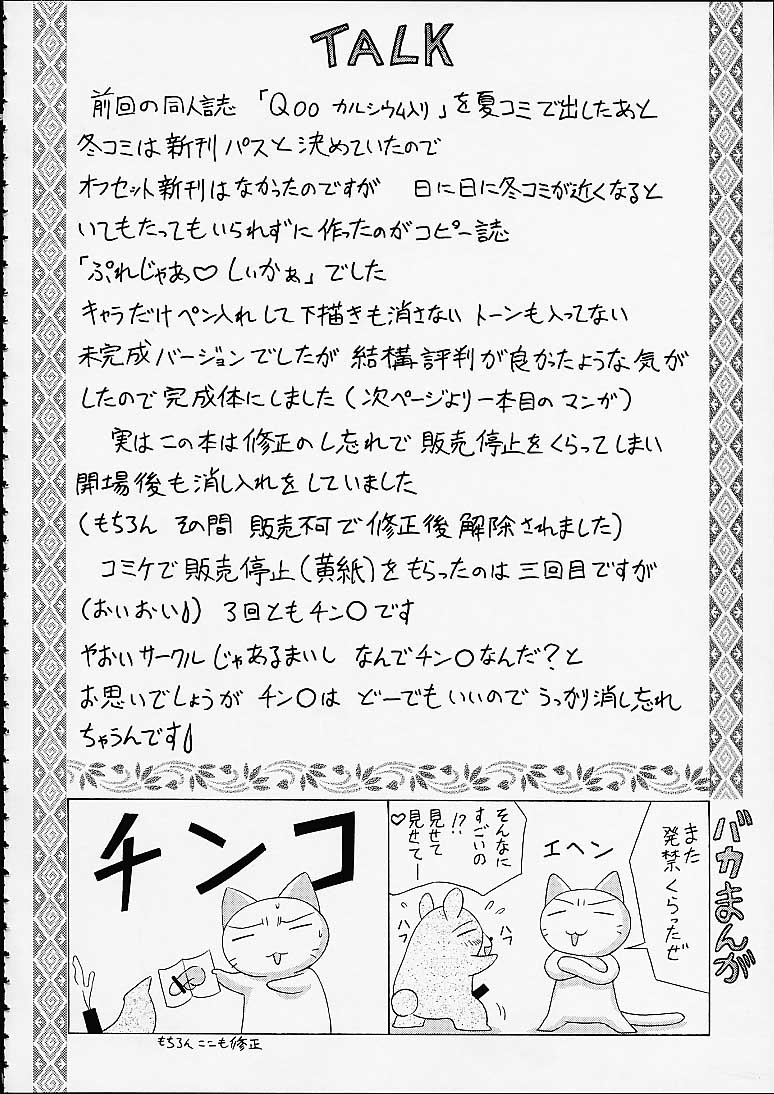 TALK
前回の同人誌 「Qoo カルシウム入り」を夏コミで出したあと
冬コミは新刊パスと決めていたので
オフセット新刊はなかったのですが 日に日に冬コミが近くなると
いてもたってもいられずに作ったのがコピー誌
「ぷれじゃあ♡しぃかぁ」でした
キャラだけペン入れして下描きも消さない トーンも入ってない
未完成バージョンでしたが 結構評判が良かったような気が
したので完成体にしました(次ページより一本目のマンガ)
実はこの本は修正のし忘れで 販売停止をくらってしまい
開場後も消し入れをしていました
(もちろん その間 販売不可で修正後 解除されました)
コミケで販売停止(黄紙)をもらったのは三回目ですが
(おいおい) 3回ともチン〇です
やおいサークルじゃあるまいし なんでチン〇なんだ?と
お思いでしょうが チン〇は どーでもいいので うっかり消し忘れ
ちゃうんです
バカまんが
また
発禁くらったぜ
エヘン
そんなに
すごいの
!?
見せて
見せてー
♡
ハフ
ハフ
チンコ
もちろんここも修正